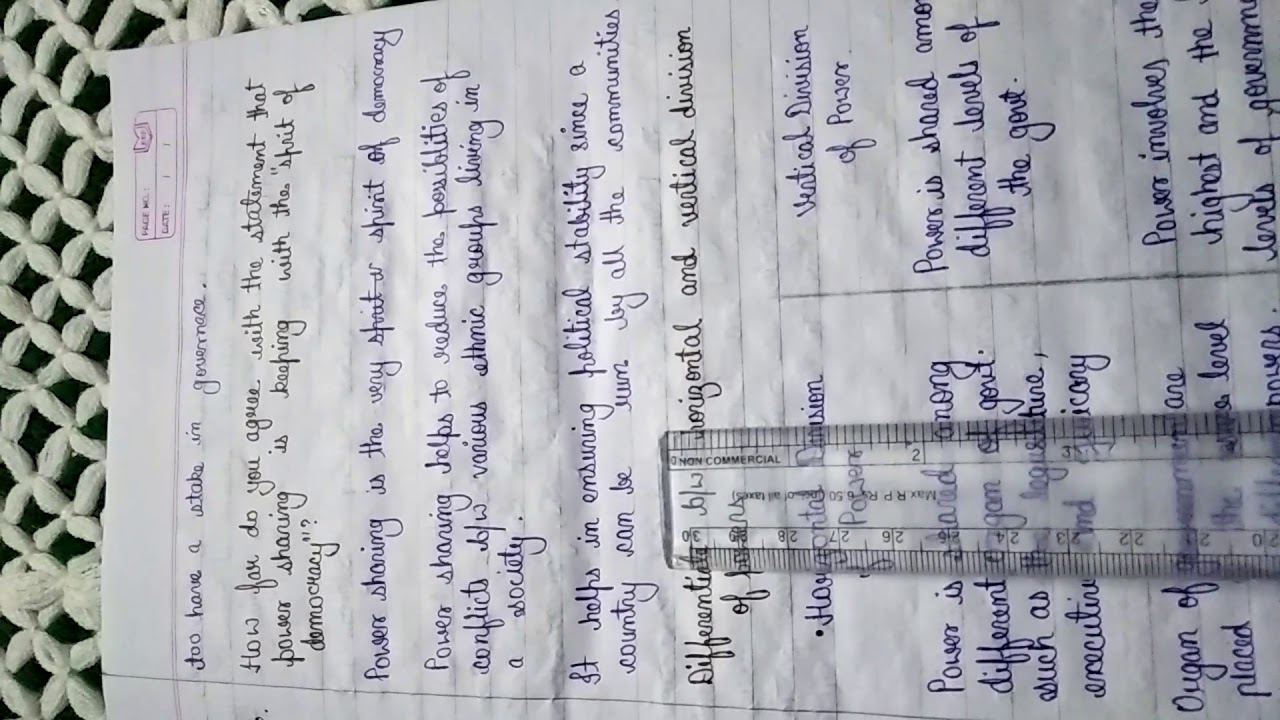 PAGE NO.:
DATE:
too have a stake in governace.
How far do you agree with the statement that
power sharing is keeping with the "spirit of
democracy"?
Power sharing is the very spirit of democracy
Power sharing helps to reduce the possiblities of
conflicts b/w various ethnic groups living in
a society.
It helps in ensuring political stability since a
country can be run by all the communities
Differentiate b/w horizontal and vertical division
of powers
• Horizontal Division
of Powers
Power is shared among
different organ of govt.
such as the legislature,
executive and judiciary
Organ of government are
placed the same level
powers.
Vertical Division
of Power
Power is shared
different levels of
the govt.
Power involves the
highest and the
levels of
NON COMMERCIAL
Max R P Rs 6.50 of all taxes)
30 28 27 26 25 24 23 22 21 20
2 3